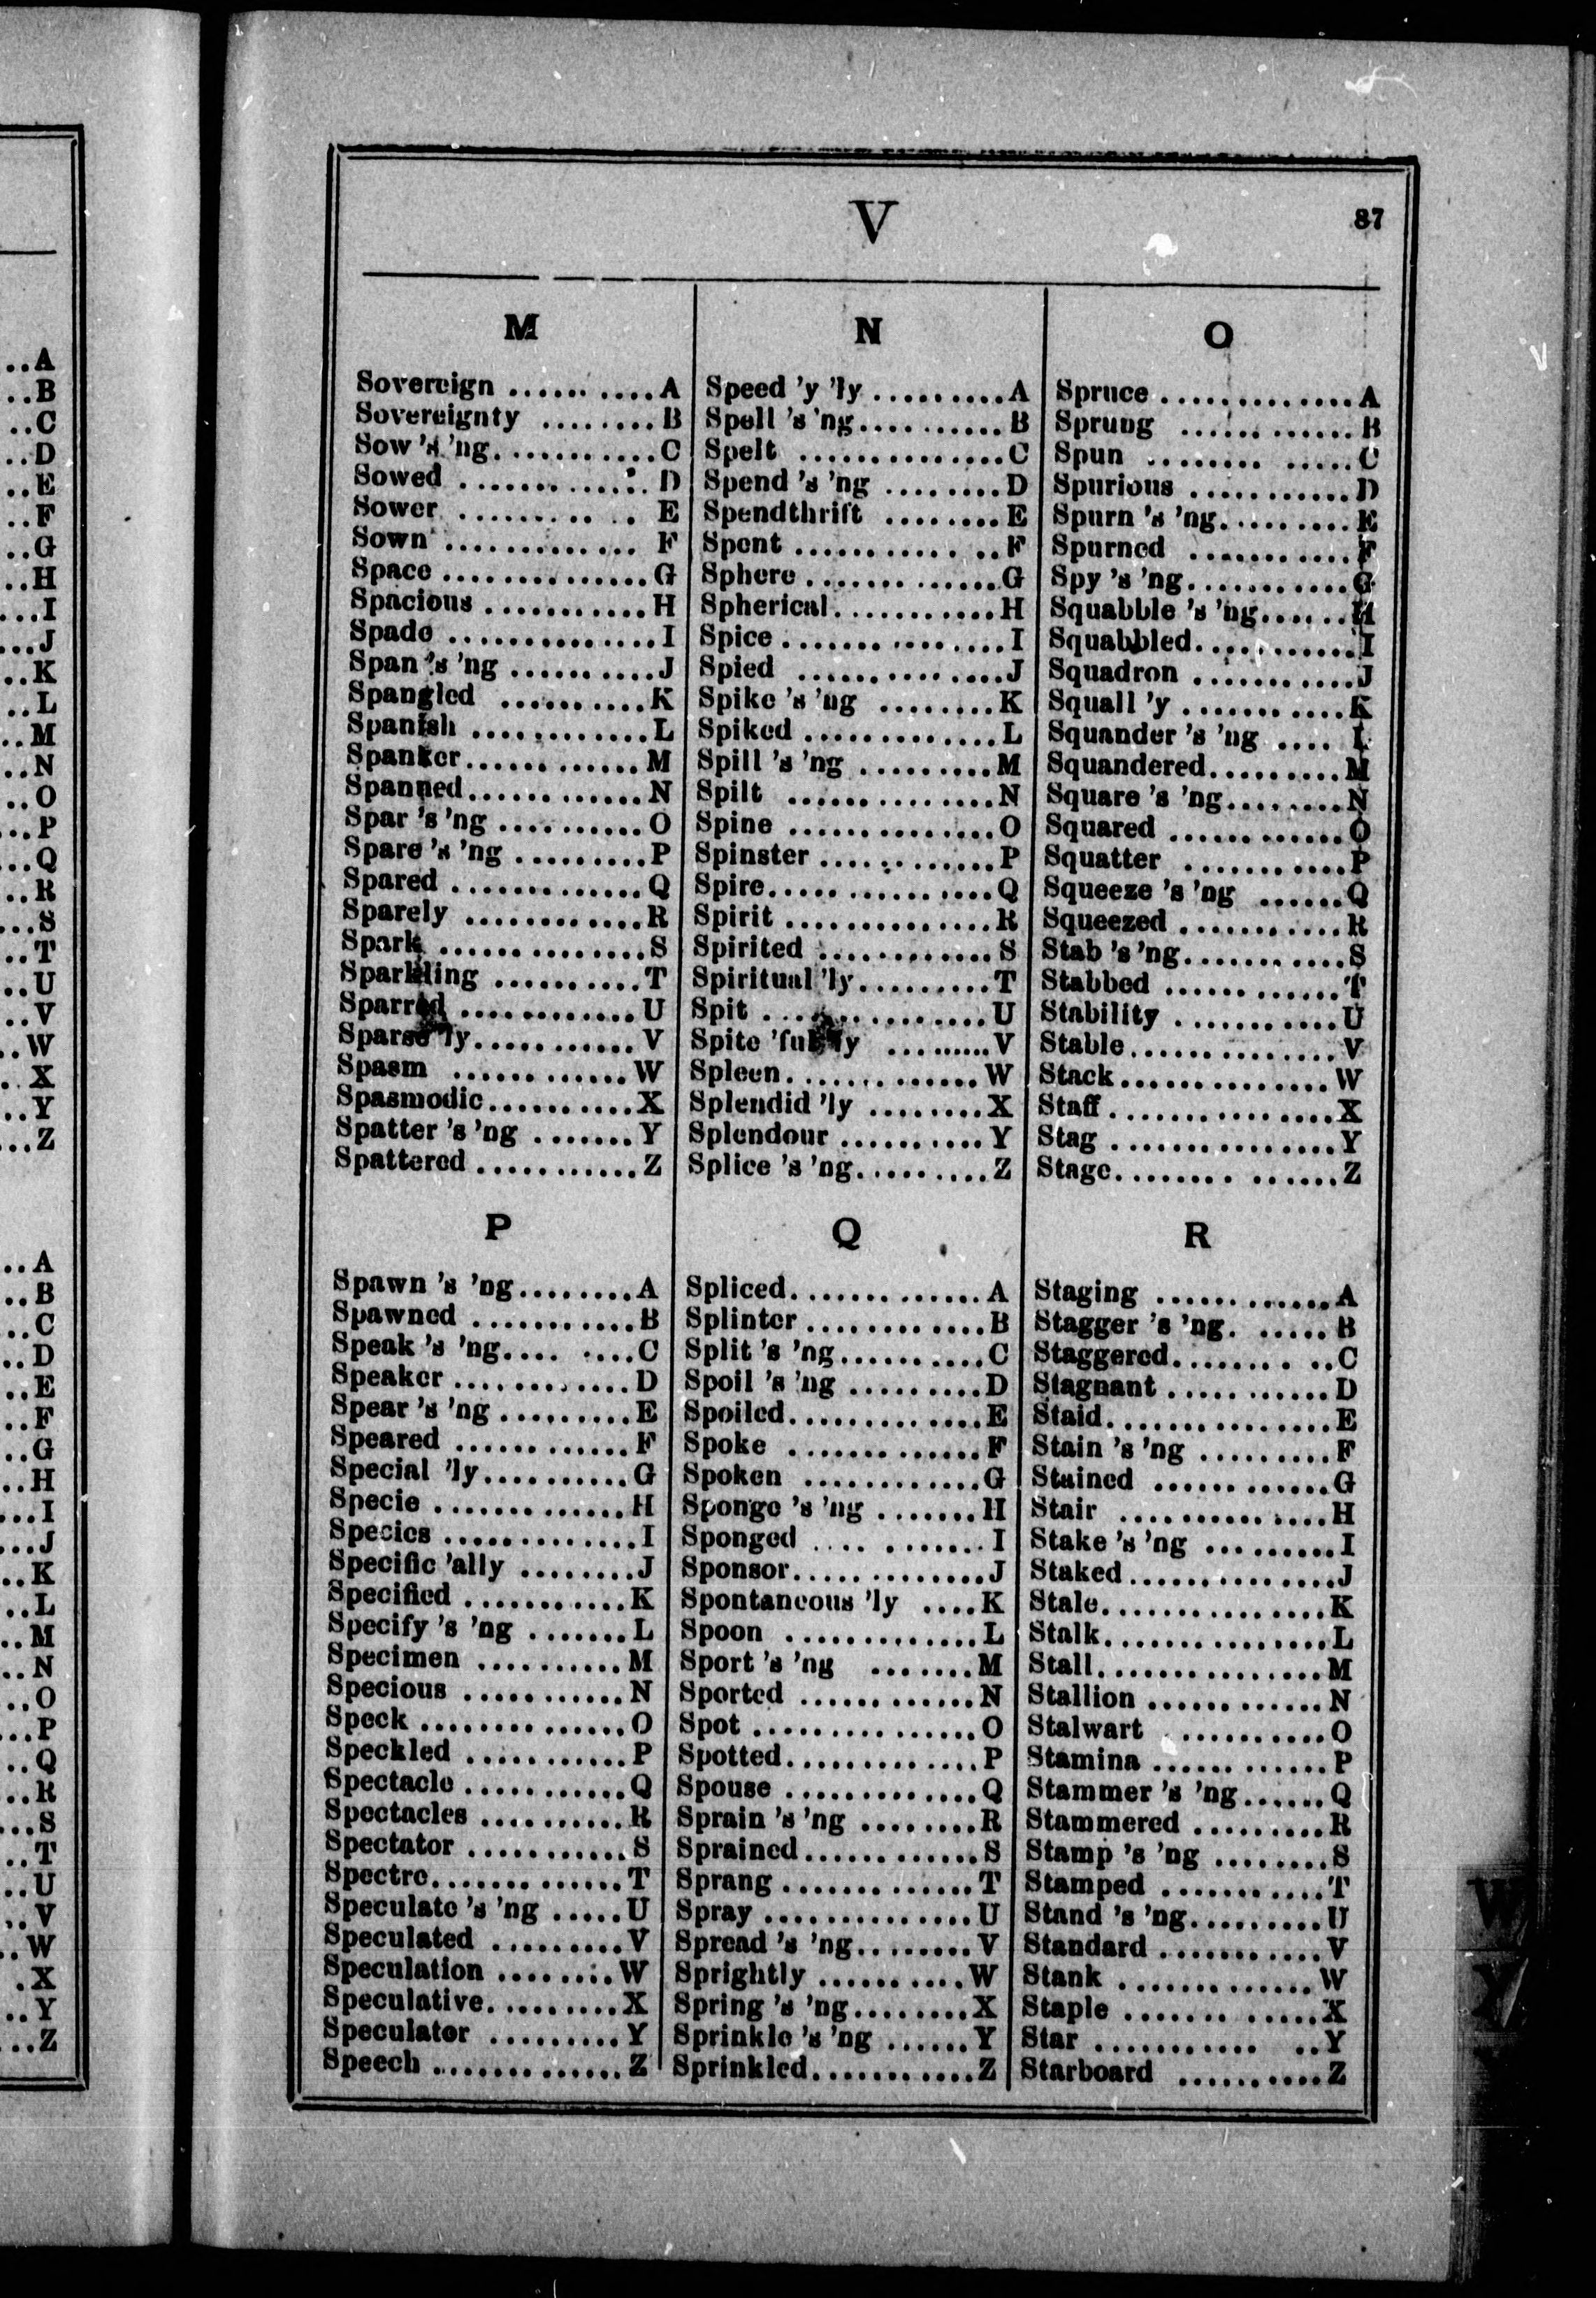 V
87
M
Sovereign .......... A
Sovereignty ........ B
Sow 's 'ng ........... C
Sowed ............. D
Sower ........... E
Sown ............. F
Space ............... G
Spacious ........... H
Spade .............. I
Span 's 'ng .......... J
Spangled .......... K
Spanish ............ L
Spanker ............ M
Spanned ............ N
Spar 's 'ng .......... O
Spare 's 'ng ......... P
Spared ............. Q
Sparely ............ R
Spark .............. S
Sparkling .......... T
Sparred ............ U
Sparse 'ly ........... V
Spasm ............ W
Spasmodic .......... X
Spatter 's 'ng ....... Y
Spattered ........... Z
N
Speed 'y 'ly ......... A
Spell 's 'ng .......... B
Spelt .............. C
Spend 's 'ng ........ D
Spendthrift ........ E
Spent ............. F
Sphere ............. G
Spherical ........... H
Spice .............. I
Spied .............. J
Spike 's 'ng ........ K
Spiked ............. L
Spill 's 'ng ......... M
Spilt .............. N
Spine .............. O
Spinster ........... P
Spire .............. Q
Spirit .............. R
Spirited ............ S
Spiritual 'ly ......... T
Spit .............. U
Spite 'ful 'ly .......... V
Spleen ............. W
Splendid 'ly ........ X
Splendour .......... Y
Splice 's 'ng ......... Z
O
Spruce ............. A
Sprung ............ B
Spun ............. C
Spurious ........... D
Spurn 's 'ng ......... E
Spurned ........... F
Spy 's 'ng ........... G
Squabble 's 'ng ...... H
Squabbled ........... I
Squadron ........... J
Squall 'y ........... K
Squander 's 'ng .... L
Squandered ......... M
Square 's 'ng ........ N
Squared ............ O
Squatter ........... P
Squeeze 's 'ng ...... Q
Squeezed ........... R
Stab 's 'ng .......... S
Stabbed ............ T
Stability ........... U
Stable .............. V
Stack .............. W
Staff ............... X
Stag ............... Y
Stage .............. Z
P
Spawn 's 'ng ........ A
Spawned ........... B
Speak 's 'ng ........ C
Speaker ............ D
Spear 's 'ng ......... E
Speared ............ F
Special 'ly .......... G
Specie ............. H
Species ............. I
Specific 'ally ........ J
Specified ........... K
Specify 's 'ng ....... L
Specimen .......... M
Specious ........... N
Speck .............. O
Speckled ........... P
Spectacle ........... Q
Spectacles .......... R
Spectator ........... S
Spectre ............. T
Speculate 's 'ng ..... U
Speculated ......... V
Speculation ........ W
Speculative ......... X
Speculator ......... Y
Speech ............. Z
Q
Spliced ............. A
Splinter ............ B
Split 's 'ng .......... C
Spoil 's 'ng ......... D
Spoiled ............. E
Spoke ............. F
Spoken ............ G
Sponge 's 'ng ....... H
Sponged ........... I
Sponsor ............. J
Spontaneous 'ly .... K
Spoon ............. L
Sport 's 'ng ....... M
Sported ............ N
Spot ............... O
Spotted ............. P
Spouse ............. Q
Sprain 's 'ng ........ R
Sprained ............ S
Sprang ............. T
Spray .............. U
Spread 's 'ng ........ V
Sprightly .......... W
Spring 's 'ng ........ X
Sprinkle 's 'ng ...... Y
Sprinkled ........... Z
R
Staging ............ A
Stagger 's 'ng ...... B
Staggered .......... C
Stagnant ........... D
Staid ............... E
Stain 's 'ng ......... F
Stained ............ G
Stair .............. H
Stake 's 'ng ......... I
Staked .............. J
Stale ............... K
Stalk ............... L
Stall ............... M
Stallion ............ N
Stalwart ........... O
Stamina ............ P
Stammer 's 'ng ...... Q
Stammered ......... R
Stamp 's 'ng ........ S
Stamped ........... T
Stand 's 'ng ......... U
Standard ........... V
Stank ............. W
Staple ............. X
Star ............. Y
Starboard .......... Z
..A
..B
..C
..D
..E
..F
..G
..H
...I
...J
..K
..L
..M
..N
..O
...P
...Q
..R
...S
..T
..U
..V
..W
..X
..Y
...Z
..A
..B
..C
..D
..E
..F
..G
..H
...I
...J
..K
..L
..M
..N
..O
...P
..Q
...R
...S
..T
..U
..V
..W
.X
..Y
...Z
W
Y